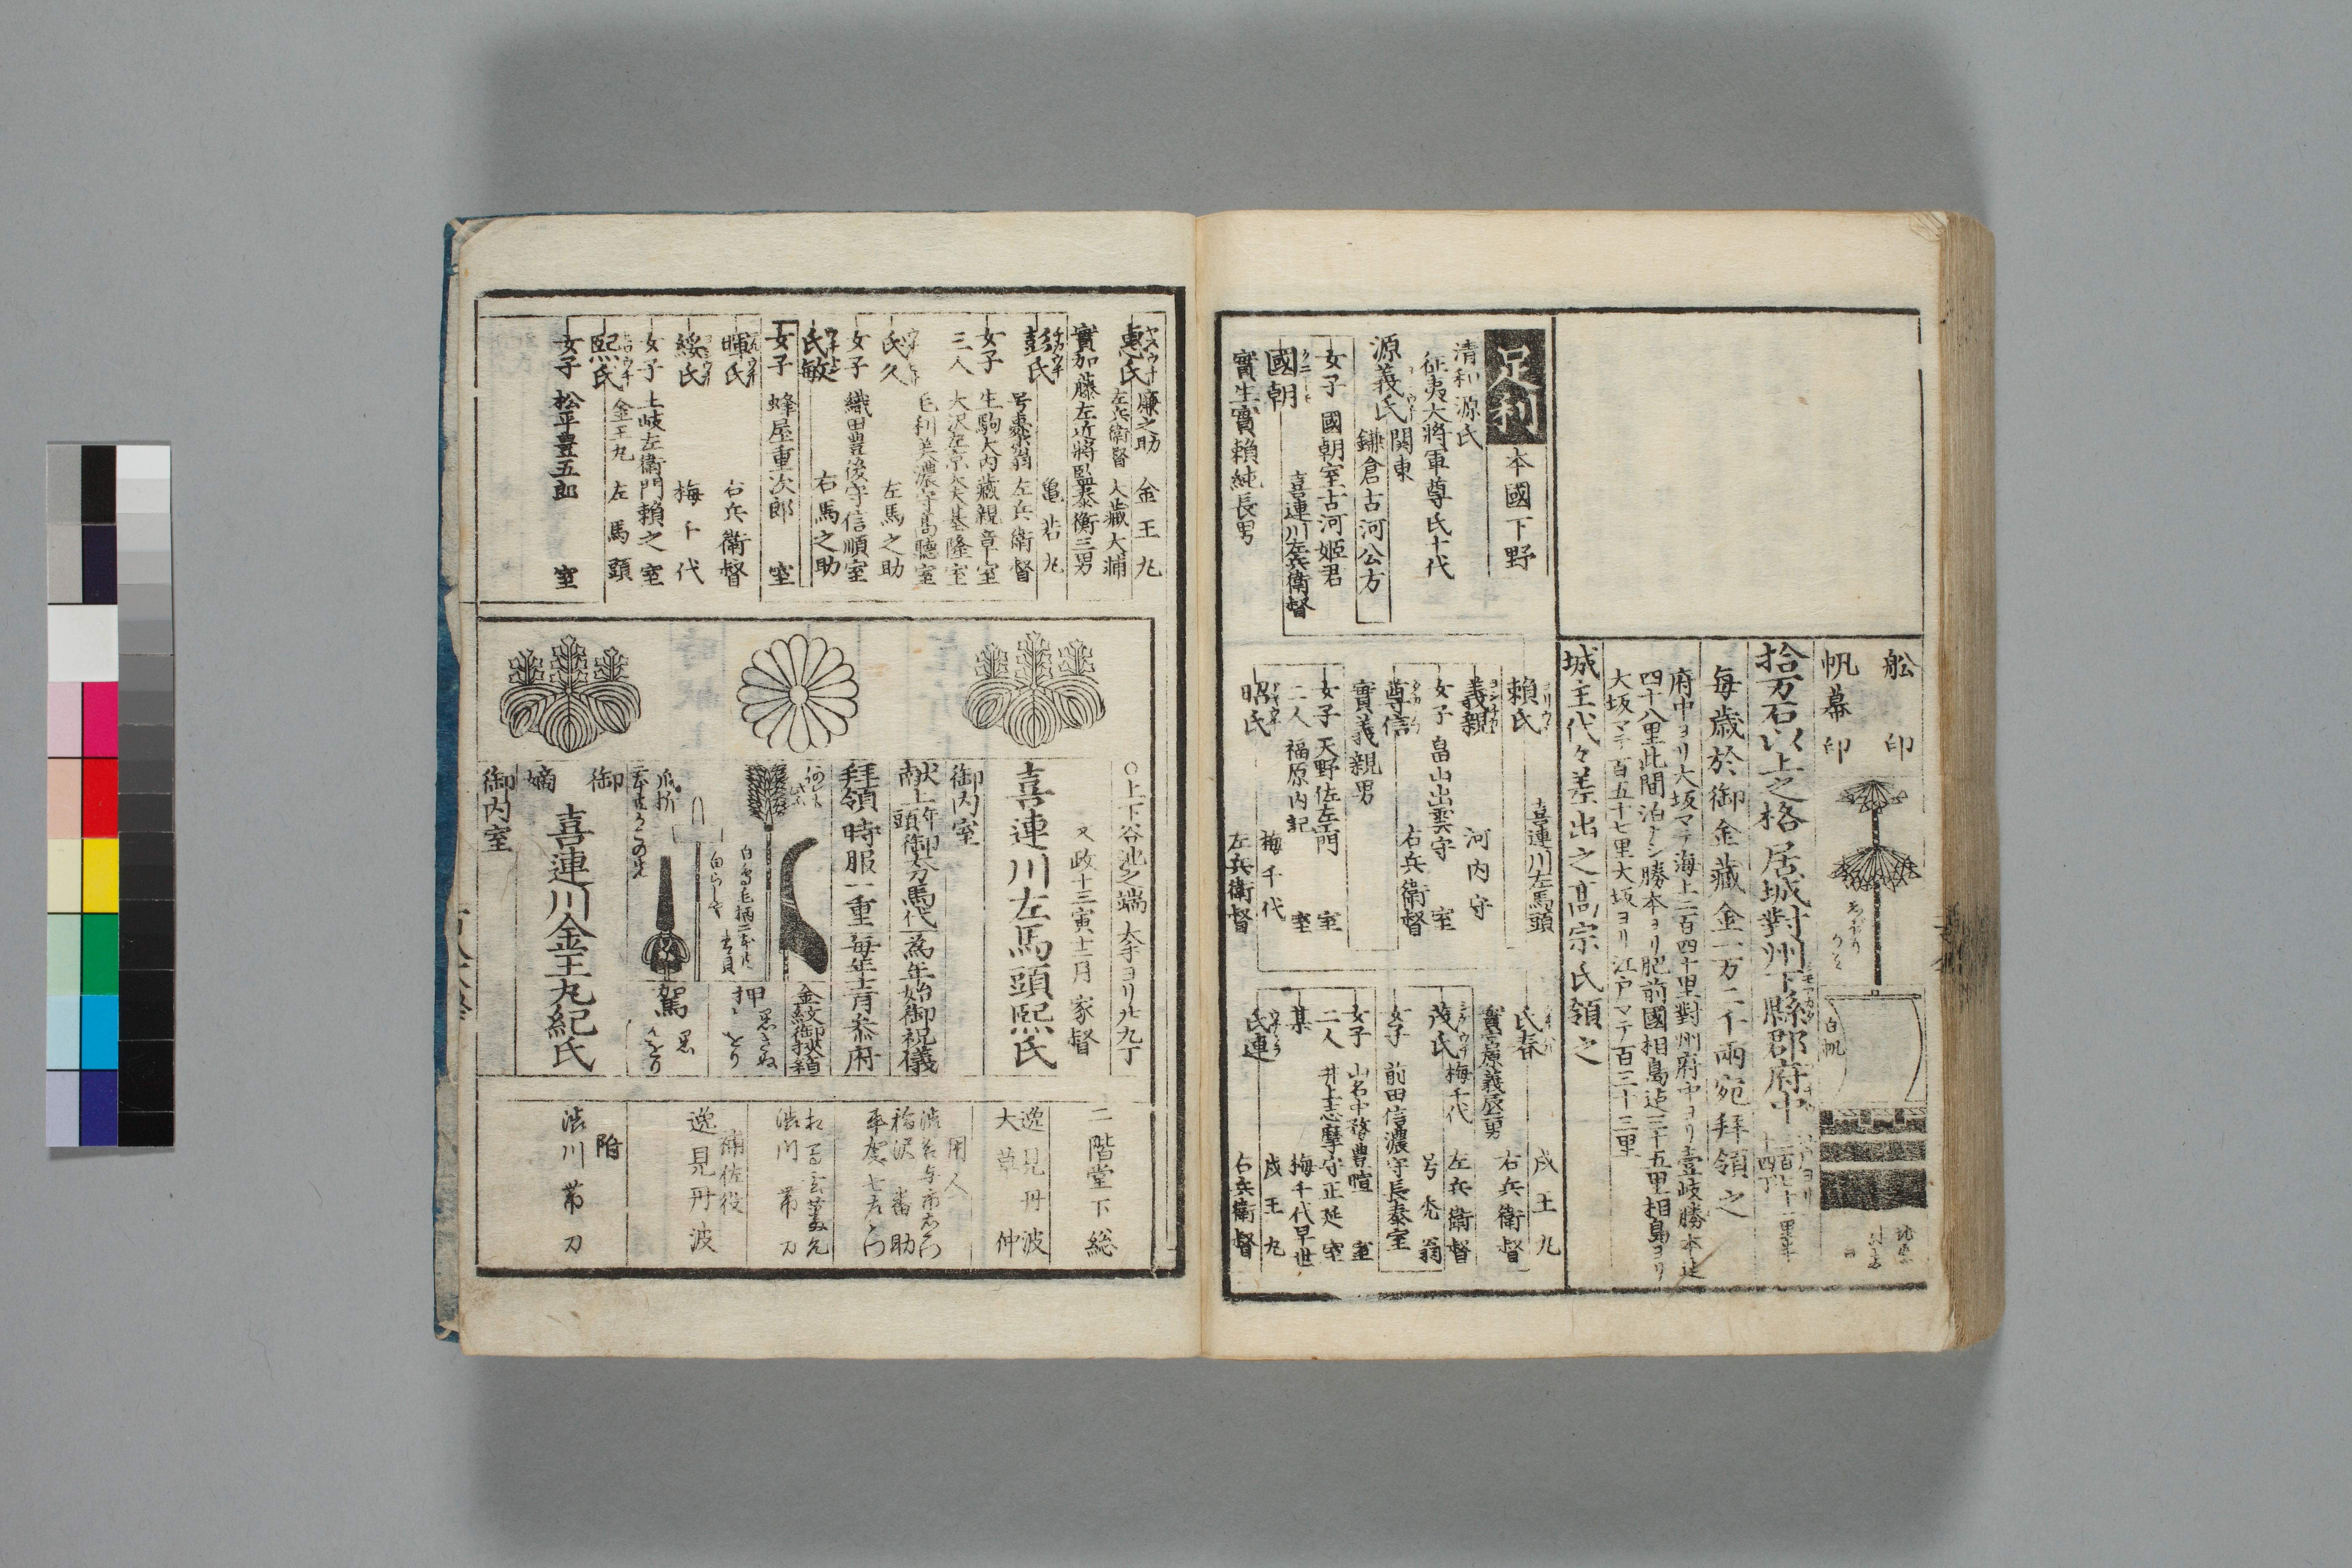 舩印
帆幕印
白帆
拾万石以上之格居城對州下縣郡府中
毎歳於御金藏金一万二千兩宛拜領之
府中ヨリ大坂マテ海上二百四十里對州府中ヨリ壹岐勝本迠
四十八里此間泊ナシ勝本ヨリ肥前國相島迠三十五里相島ヨリ
大坂マテ百五十七里大坂ヨリ江戸マテ百三十三里
城主代々差出之髙宗氏領之
足利
本國下野
清和源氏
征夷大將軍尊氏十代
関東
源義氏
鎌倉古河公方
女子 國朝室古河姫君
國朝 喜連川左兵衛督
實生實頼純長男
頼氏 喜連川左馬頭
義親 河内守
女子 畠山出雲守 室
尊信 右兵衛督
實義親男
女子 天野佐左門 室
二人 福原内記 室
昭氏 梅千代
左兵衛督
氏春 戌王丸
右兵衛督
實宮原義辰男
茂氏 梅千代 左兵衛督
号光翁
女子 前田信濃守長泰室
女子 山名中務豊暄 室
二人 井上志摩守正延 室
某 梅千代早世
氏連 戌王丸
右兵衛督
惠氏 廉之助 金王丸
左兵衛督 大藏大輔
實加藤左近將監泰衡三男
彭氏 亀若丸
号泰翁 左兵衛督
女子 生駒大内藏親章室
三人 大沢左京大夫基隆室
毛利美濃守髙聴室
氏久 左馬之助
女子 織田豊後守信順室
氏敏 右馬之助
女子 蜂屋重次郎 室
暉氏 右兵衛督
綏氏 梅千代
女子 土岐左衛門頼之 室
熙氏 金王丸 左馬頭
女子 松平豊五郎 室
○上下谷池之端 大手ヨリ廿九丁
文政十三寅十二月家督
喜連川左馬頭熙氏
御内室
献上 年頭御太刀馬代 為年始御祝儀
拜領 時服一重 毎年十二月参府
金紋御挾箱
押 黒きぬ はをり
駕 黒 はをり
御嫡
喜連川金王丸紀氏
御内室
二階堂下総
逸見丹波
大草仲
用人
渋江与市右衛門
福沢番助
平賀七左衛門
渋川帯刀
補佐役
逸見丹波
附
渋川帯刀